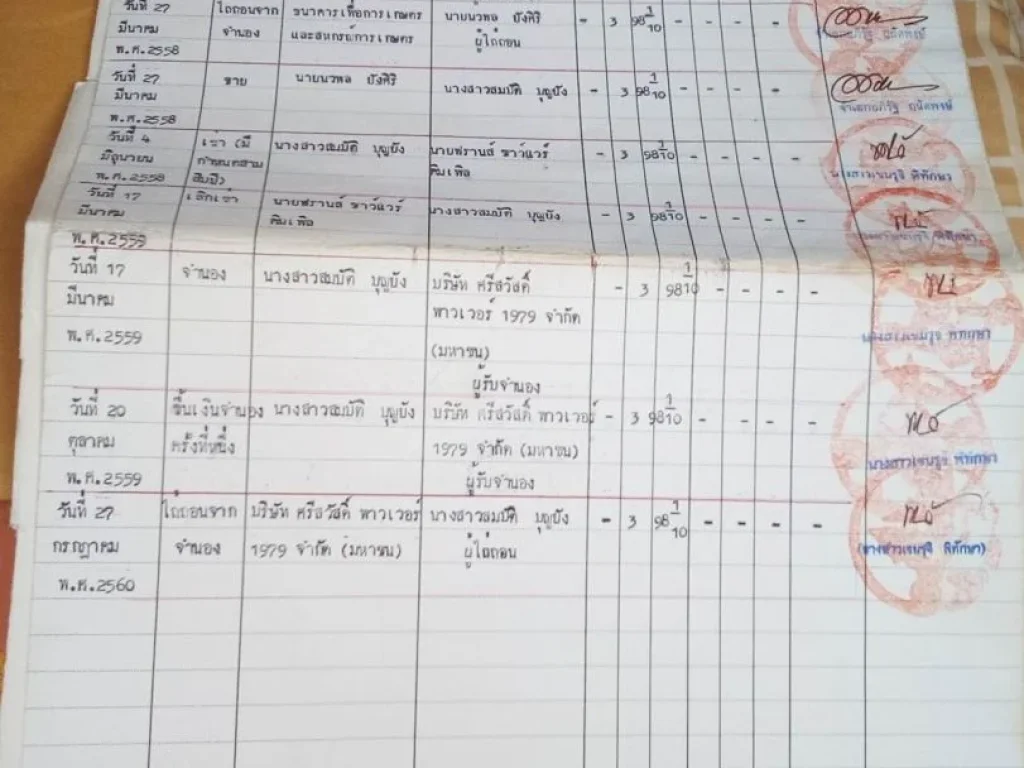 วันที่ 27 ไถ่ถอนจาก ธนาคารเพื่อการเกษตร นายนวพล ยังศิริ - 3 98 1/10 - - - -
มีนาคม จำนอง และสหกรณ์การเกษตร ผู้ไถ่ถอน
พ.ศ.2558
วันที่ 27 ขาย นายนวพล ยังศิริ นางสาวสมบัติ บุญยัง - 3 98 1/10 - - - -
มีนาคม
พ.ศ.2558
วันที่ 4 เช่า (มี นางสาวสมบัติ บุญยัง นายฟรานส์ ซาว์แวร์ - 3 98 1/10 - - - -
มิถุนายน กำหนดสาม คิมเพิล
พ.ศ.2558 สิบปี)
วันที่ 17 เลิกเช่า นายฟรานส์ ซาว์แวร์ นางสาวสมบัติ บุญยัง - 3 98 1/10 - - - -
มีนาคม คิมเพิล
พ.ศ.2559
วันที่ 17 จำนอง นางสาวสมบัติ บุญยัง บริษัท ศรีสวัสดิ์ - 3 98 1/10 - - - -
มีนาคม พาวเวอร์ 1979 จำกัด
พ.ศ.2559 (มหาชน)
ผู้รับจำนอง
วันที่ 20 ขึ้นเงินจำนอง นางสาวสมบัติ บุญยัง บริษัท ศรีสวัสดิ์ พาวเวอร์ - 3 98 1/10 - - - -
ตุลาคม ครั้งที่หนึ่ง 1979 จำกัด (มหาชน)
พ.ศ.2559 ผู้รับจำนอง
วันที่ 27 ไถ่ถอนจาก บริษัท ศรีสวัสดิ์ พาวเวอร์ นางสาวสมบัติ บุญยัง - 3 98 1/10 - - - -
กรกฎาคม จำนอง 1979 จำกัด (มหาชน) ผู้ไถ่ถอน
พ.ศ.2560